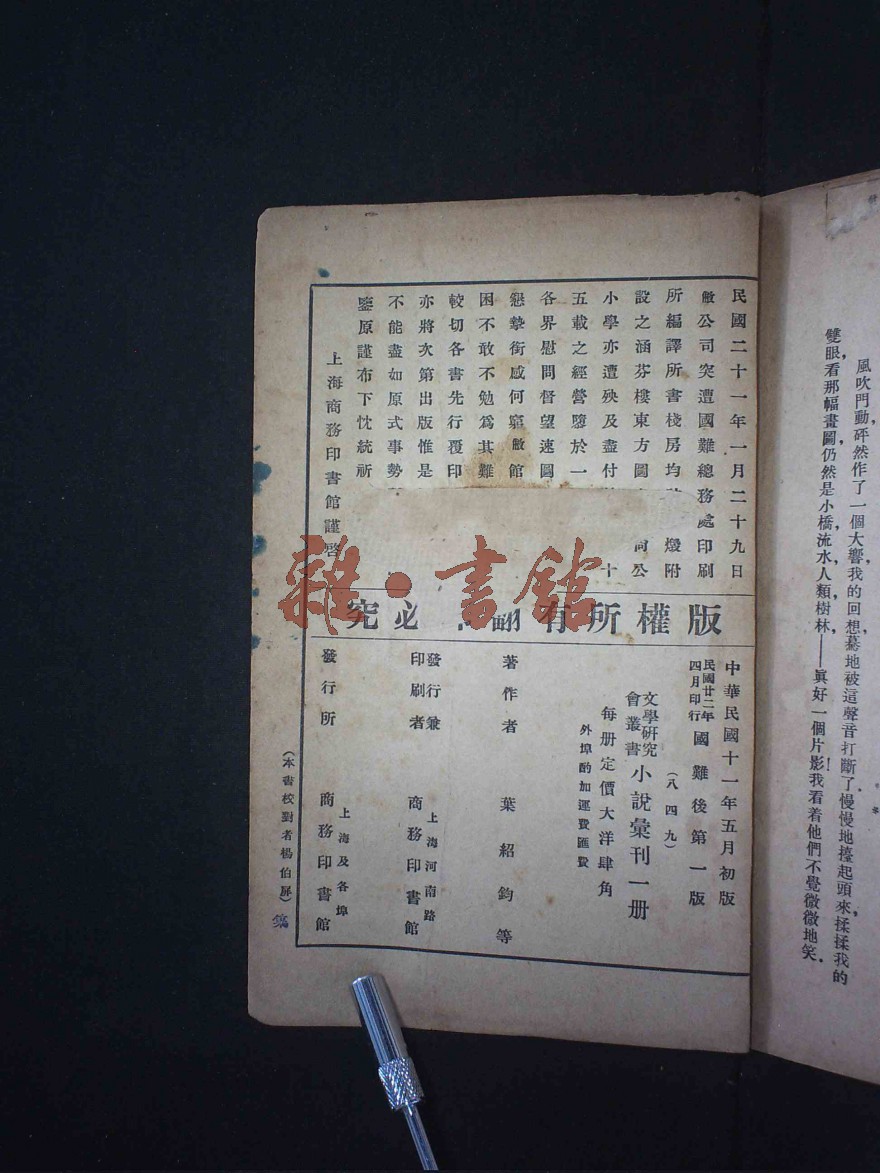 風吹門動，砰然作了一個大響，我的回想，驀地被這聲音打斷了．慢慢地擡起頭來，揉揉我的
雙眼看那幅畫圖，仍然是小橋，流水，人類，樹林，——眞好一個片影！我看着他們不覺微微地笑．
民國二十一年一月二十九日
敝公司突遭國難總務處印刷
所編譯所書棧房均 燬附
設之涵芬樓東方圖 尚公
小學亦遭殃及盡付 十
五載之經營隳於一
各界慰問督望速圖
懇摯銜感何窮敝館
困不敢不勉爲其難
較切各書先行覆印
亦將次第出版惟是
不能盡如原式事勢
鑒原謹布下忱統祈
上海商務印書館謹啓
版權所有翻 必究
中華民國十一年五月初版
民國廿二年四月印行 國難後第一版
（八四九）
文學研究會叢書 小說彙刊一册
每册定價大洋肆角
外埠酌加運費匯費
著作者 葉紹鈞等
發行兼印刷者 上海河南路 商務印書館
發行所 上海及各埠 商務印書館
（本書校對者楊伯屏）
雜·書館